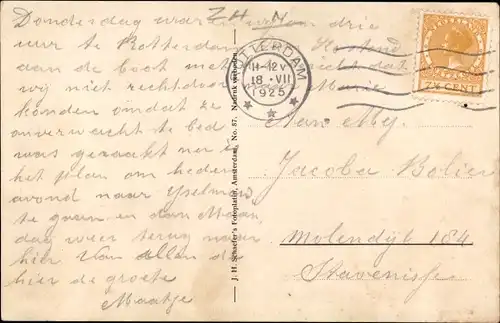 Donderdag waren wij om drie
uur te Rotterdam
aan de boot met
wij niet rechtdoor
konden omdat ze
onverwacht te bed
was geraakt nu is
het plan om heden
avond naar Yselmon
te gaan en dan Maan
dag weer terug naar
hier Van allen de
hier de groete
Maatje
ROTTERDAM
11-12 V
18 VII
1925
7½ CENT
J. H. Schaefer's Fotoplatin, Amsterdam, No. 87. Nadruk verboden.
Aan Mej.
Jacoba Bolier
Molendijk 184
Stavenisse